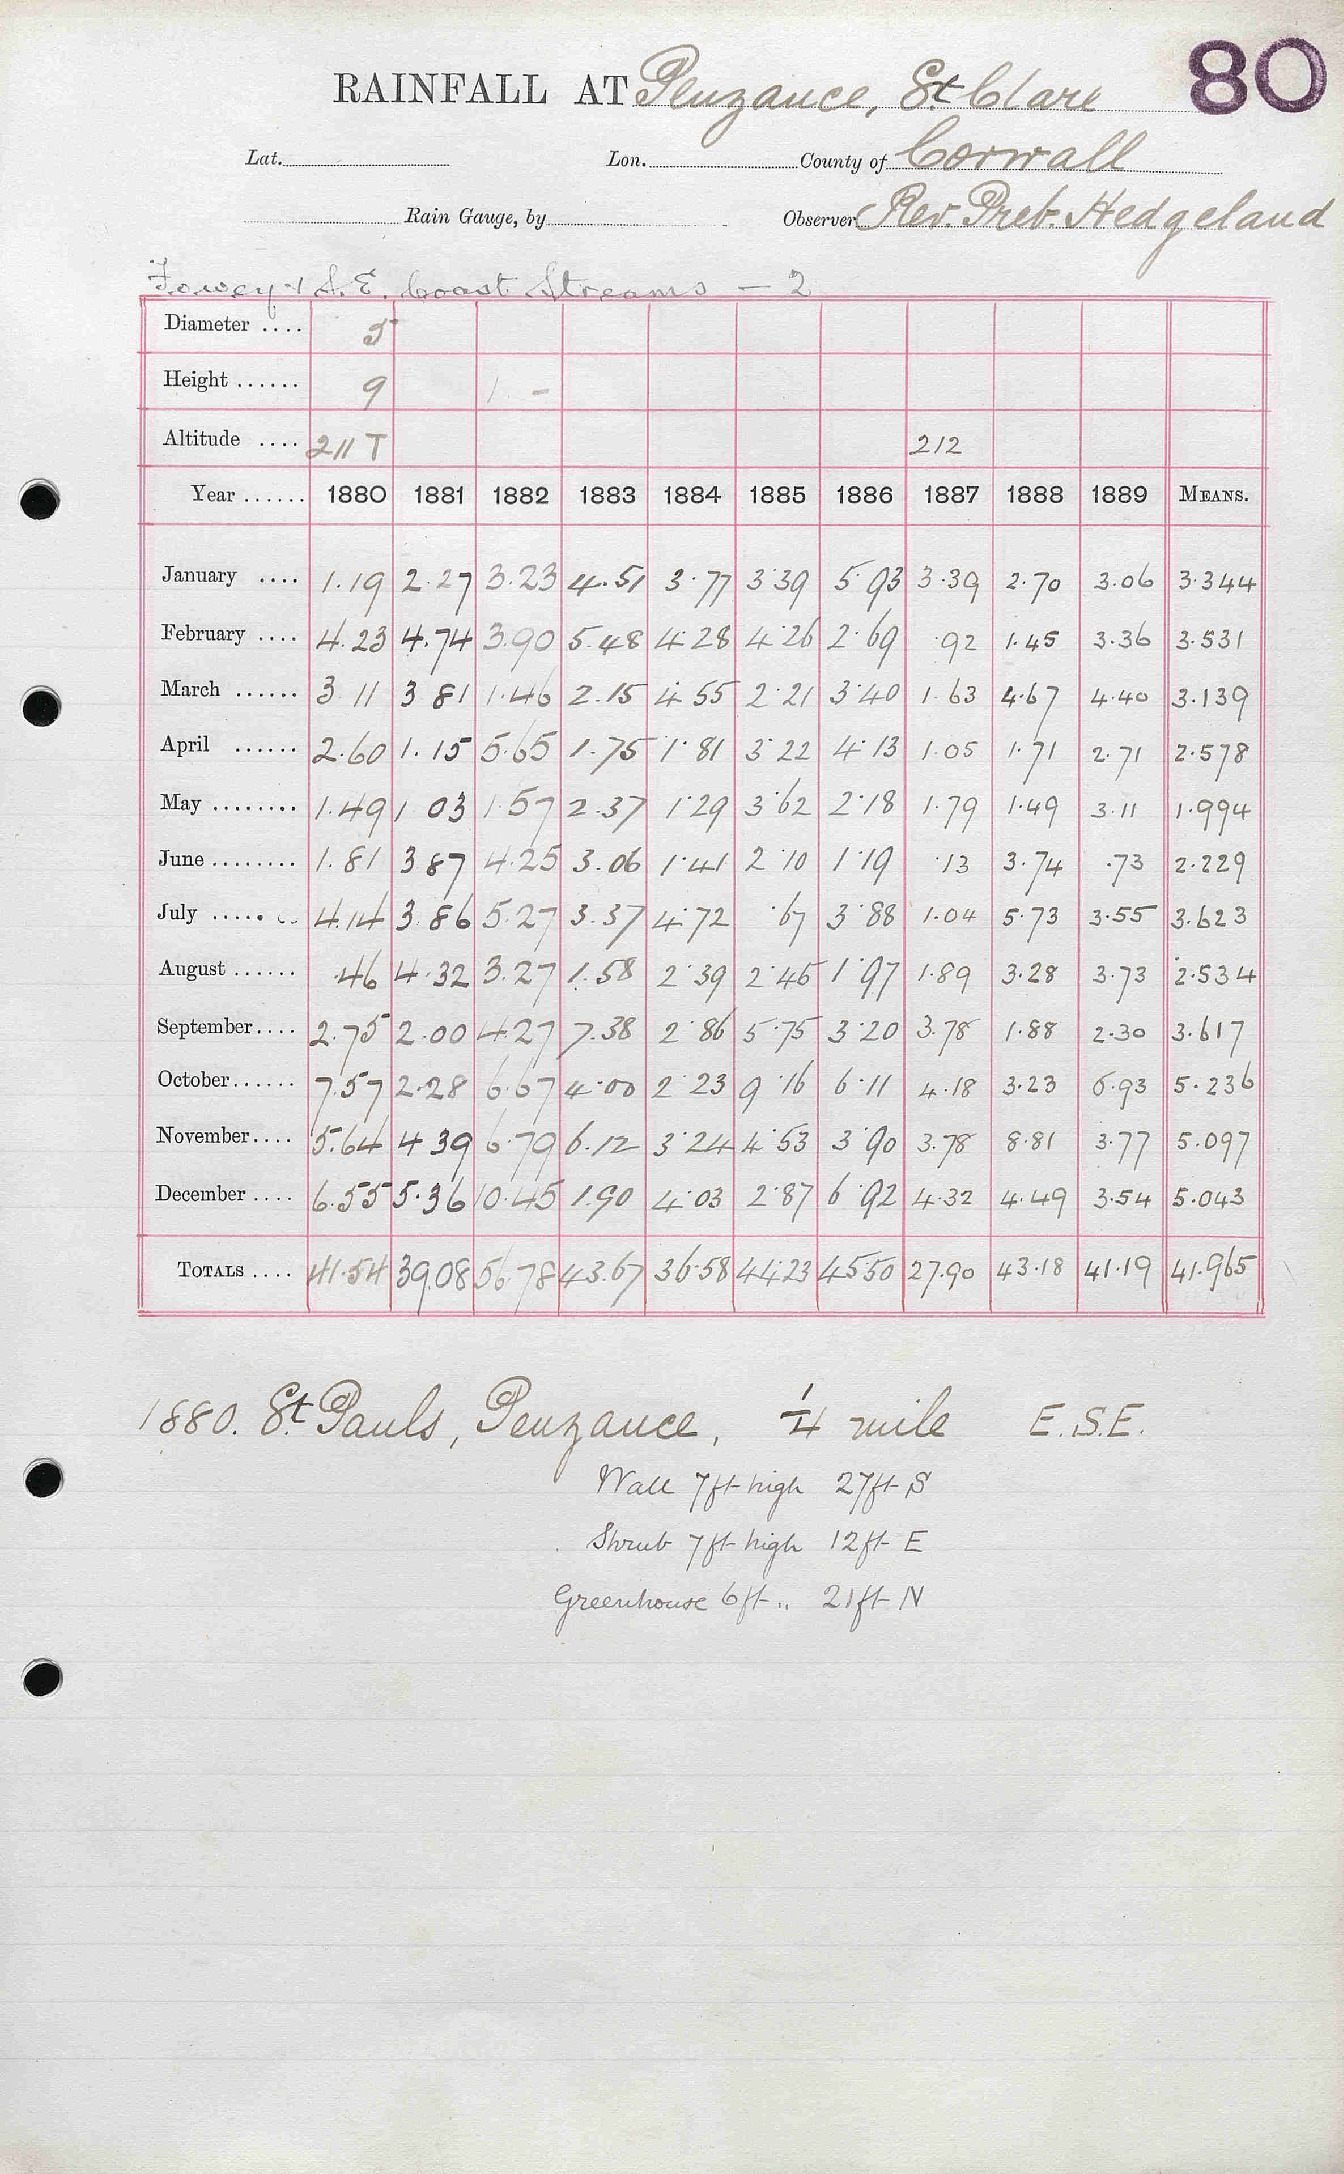 80
RAINFALL AT Penzance, St. Clare
Lat. Lon. County of Corwall
Rain Gauge, by Observer Rev. Preb. Hedgeland
Fowey & S.E. Coast Streams - 2
Diameter .... 5
Height ...... 9 1 -
Altitude .... 211 T 212
Year ...... 1880 1881 1882 1883 1884 1885 1886 1887 1888 1889 MEANS.
January .... 1.19 2.27 3.23 4.51 3.77 3.39 5.93 3.39 2.70 3.06 3.344
February .... 4.23 4.74 3.90 5.48 4.28 4.26 2.69 .92 1.45 3.36 3.531
March ...... 3 11 3 81 1.46 2.15 4.55 2.21 3.40 1.63 4.67 4.40 3.139
April ...... 2.60 1.15 5.65 1.75 1.81 3.22 4.13 1.05 1.71 2.71 2.578
May ........ 1.49 1 03 1.57 2.37 1.29 3.62 2.18 1.79 1.49 3.11 1.994
June ........ 1.81 3 87 4.25 3.06 1.41 2.10 1.19 .13 3.74 .73 2.229
July ...... 4.14 3.86 5.27 3.37 4.72 .67 3.88 1.04 5.73 3.55 3.623
August ...... .46 4.32 3.27 1.58 2.39 2.45 1.97 1.89 3.28 3.73 2.534
September .... 2.75 2.00 4.27 7.38 2.86 5.75 3.20 3.78 1.88 2.30 3.617
October ...... 7.57 2.28 6.67 4.00 2.23 9.16 6.11 4.18 3.23 6.93 5.236
November .... 5.64 4 39 6.79 6.12 3.24 4.53 3.90 3.78 8.81 3.77 5.097
December .... 6.55 5.36 10.45 1.90 4.03 2.87 6.92 4.32 4.49 3.54 5.043
TOTALS .... 41.54 39.08 56.78 43.67 36.58 44.23 45.50 27.90 43.18 41.19 41.965
1880. St. Pauls, Penzance, 1/4 mile E.S.E.
Wall 7ft high 27ft S
Shrub 7ft high 12ft E
Greenhouse 6ft „ 21ft N